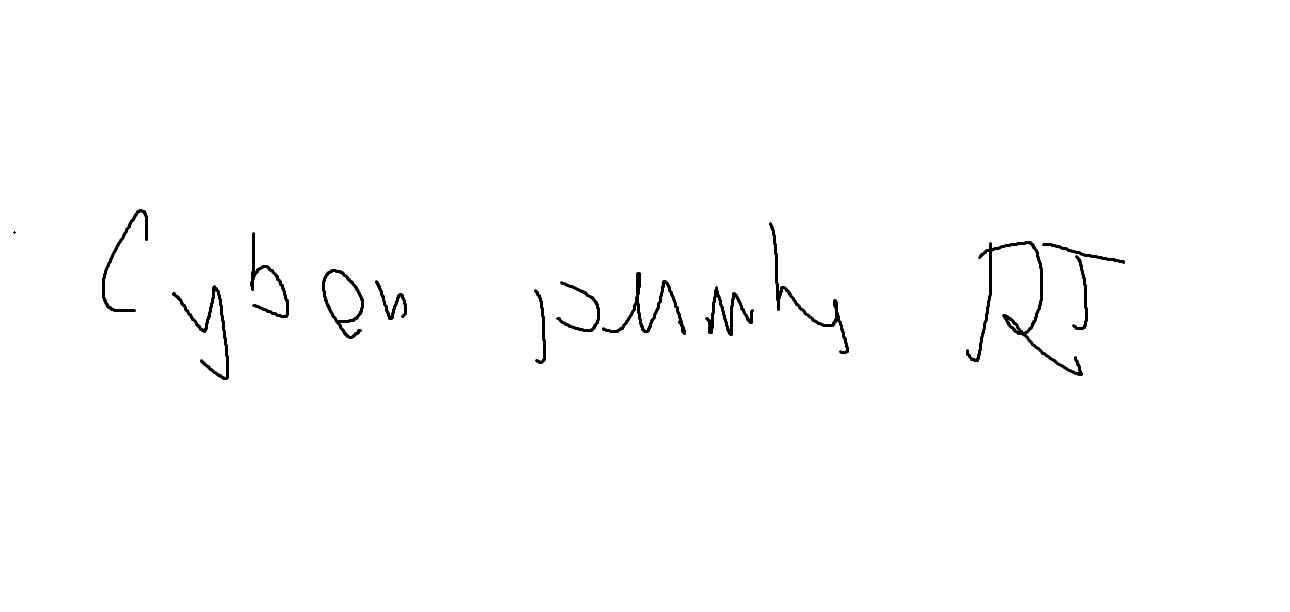 Cyber punk RT